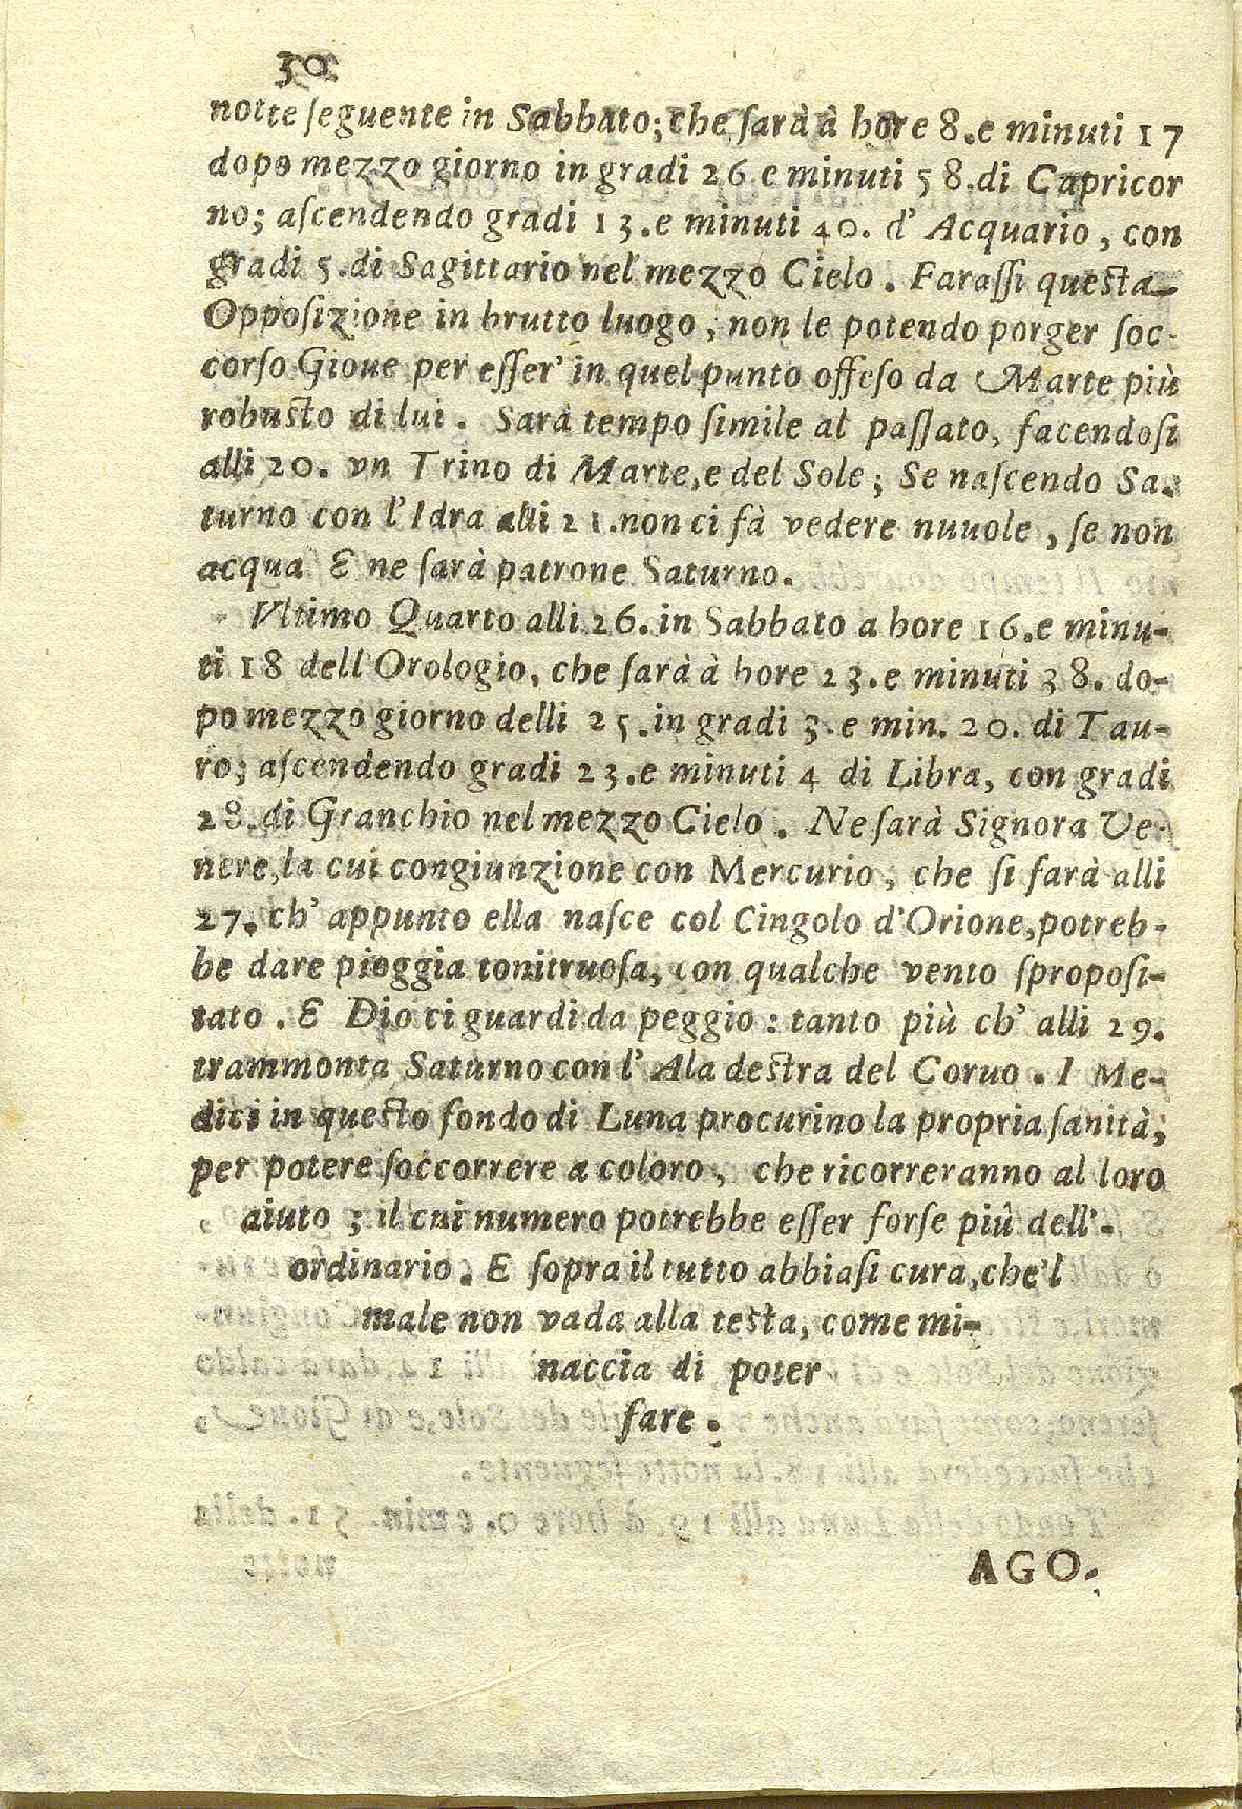 30
notte ſeguente in Sabbato; che ſarà à hore 8.e minuti 17
dopo mezzo giorno in gradi 26 e minuti 58.di Capricor
no; aſcendendo gradi 13.e minuti 40. d' Acquario, con
gradi 5.di Sagittario nel mezzo Cielo. Faraſſi queſta
Oppoſizione in brutto luogo, non le potendo porger ſoc-
corſo Gioue per eſſer' in quel punto offeſo da Marte più
robuſto di lui. Sarà tempo ſimile al paſſato, facendoſi
alli 20. vn Trino di Marte,e del Sole; Se naſcendo Sa-
turno con l'Idra alli 21.non ci fà vedere nuuole, ſe non
acqua E ne ſarà patrone Saturno.
Vltimo Quarto alli 26. in Sabbato a hore 16.e minu-
ti 18 dell'Orologio, che ſarà à hore 23.e minuti 38. do-
po mezzo giorno delli 25.in gradi 3.e min. 20. di Tau-
ro; aſcendendo gradi 23.e minuti 4 di Libra, con gradi
28.di Granchio nel mezzo Cielo. Ne ſarà Signora Ve-
nere,la cui congiunzione con Mercurio, che ſi farà alli
27. ch' appunto ella naſce col Cingolo d'Orione,potreb-
be dare pioggia tonitruoſa, con qualche vento ſpropoſi-
tato. E Dio ci guardi da peggio: tanto più ch' alli 29.
trammonta Saturno con l' Ala deſtra del Coruo. I Me-
dici in queſto fondo di Luna procurino la propria ſanità,
per potere ſoccorrere a coloro, che ricorreranno al loro
aiuto; il cui numero potrebbe eſſer forſe più dell'-
ordinario. E ſopra il tutto abbiaſi cura,che'l
male non vada alla teſta, come mi-
naccia di poter
fare.
AGO.